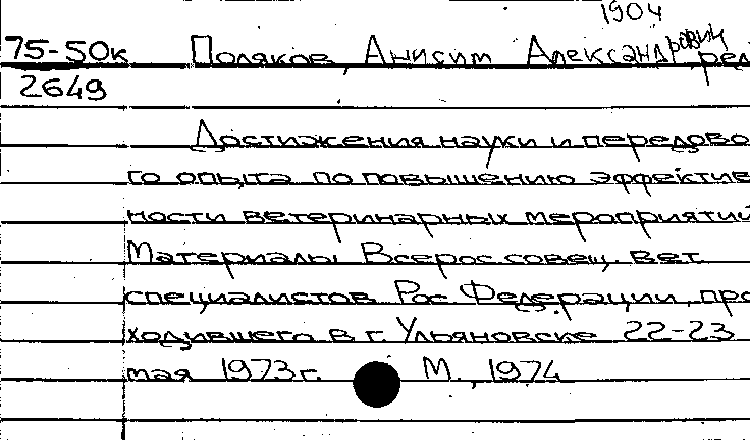 1904
75-50к Поляков, Анисим Александрович, ред
2649
Достижения науки и передово
го опыта по повышению эффектив
ности ветеринарных мероприятий
Материалы Всерос. совещ. вет.
специалистов Рос. Федерации, про
ходившего в г. Ульяновске 22-23
мая 1973 г. М., 1974